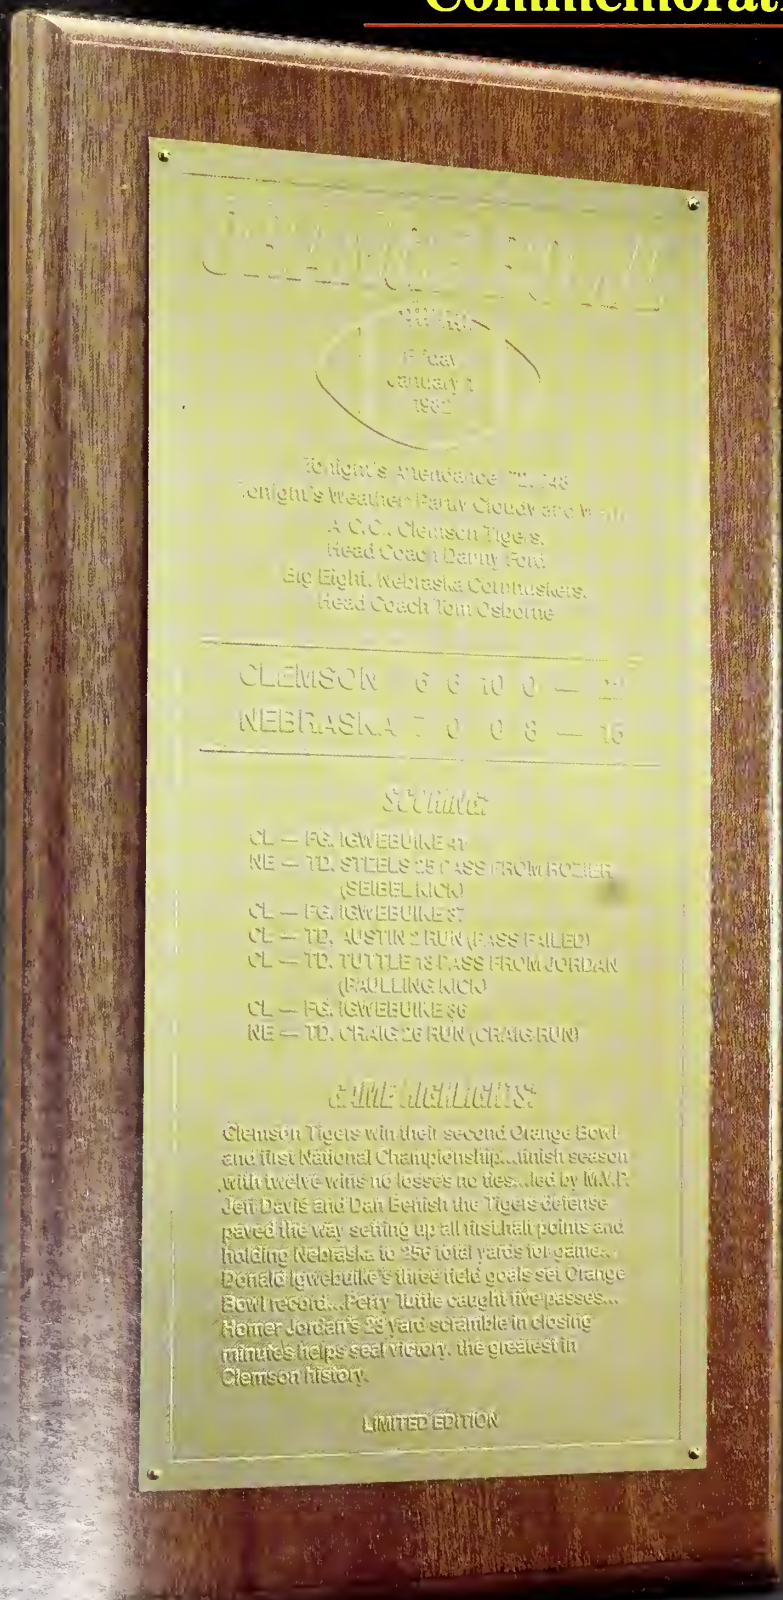 ORANGE BOWL
Friday
January 1
1982
Tonight's Attendance 72,748
Tonight's Weather Partly Cloudy and Warm
A.C.C. Clemson Tigers.
Head Coach Danny Ford
Big Eight. Nebraska Cornhuskers.
Head Coach Tom Osborne
CLEMSON 6 6 10 0 — 22
NEBRASKA 7 0 0 8 — 15
SCORING:
CL — FG. IGWEBUIKE 41
NE — TD. STEELS 25 PASS FROM ROZIER
(SEIBEL KICK)
CL — FG. IGWEBUIKE 37
CL — TD. AUSTIN 2 RUN (PASS FAILED)
CL — TD. TUTTLE 13 PASS FROM JORDAN
(PAULLING KICK)
CL — FG. IGWEBUIKE 36
NE — TD. CRAIG 26 RUN (CRAIG RUN)
GAME HIGHLIGHTS:
Clemson Tigers win their second Orange Bowl
and first National Championship...finish season
with twelve wins no losses no ties...led by M.V.P.
Jeff Davis and Dan Benish the Tigers defense
paved the way setting up all first half points and
holding Nebraska to 256 total yards for game...
Donald Igwebuike's three field goals set Orange
Bowl record...Perry Tuttle caught five passes...
Homer Jordan's 23 yard scramble in closing
minutes helps seal victory. the greatest in
Clemson history.
LIMITED EDITION